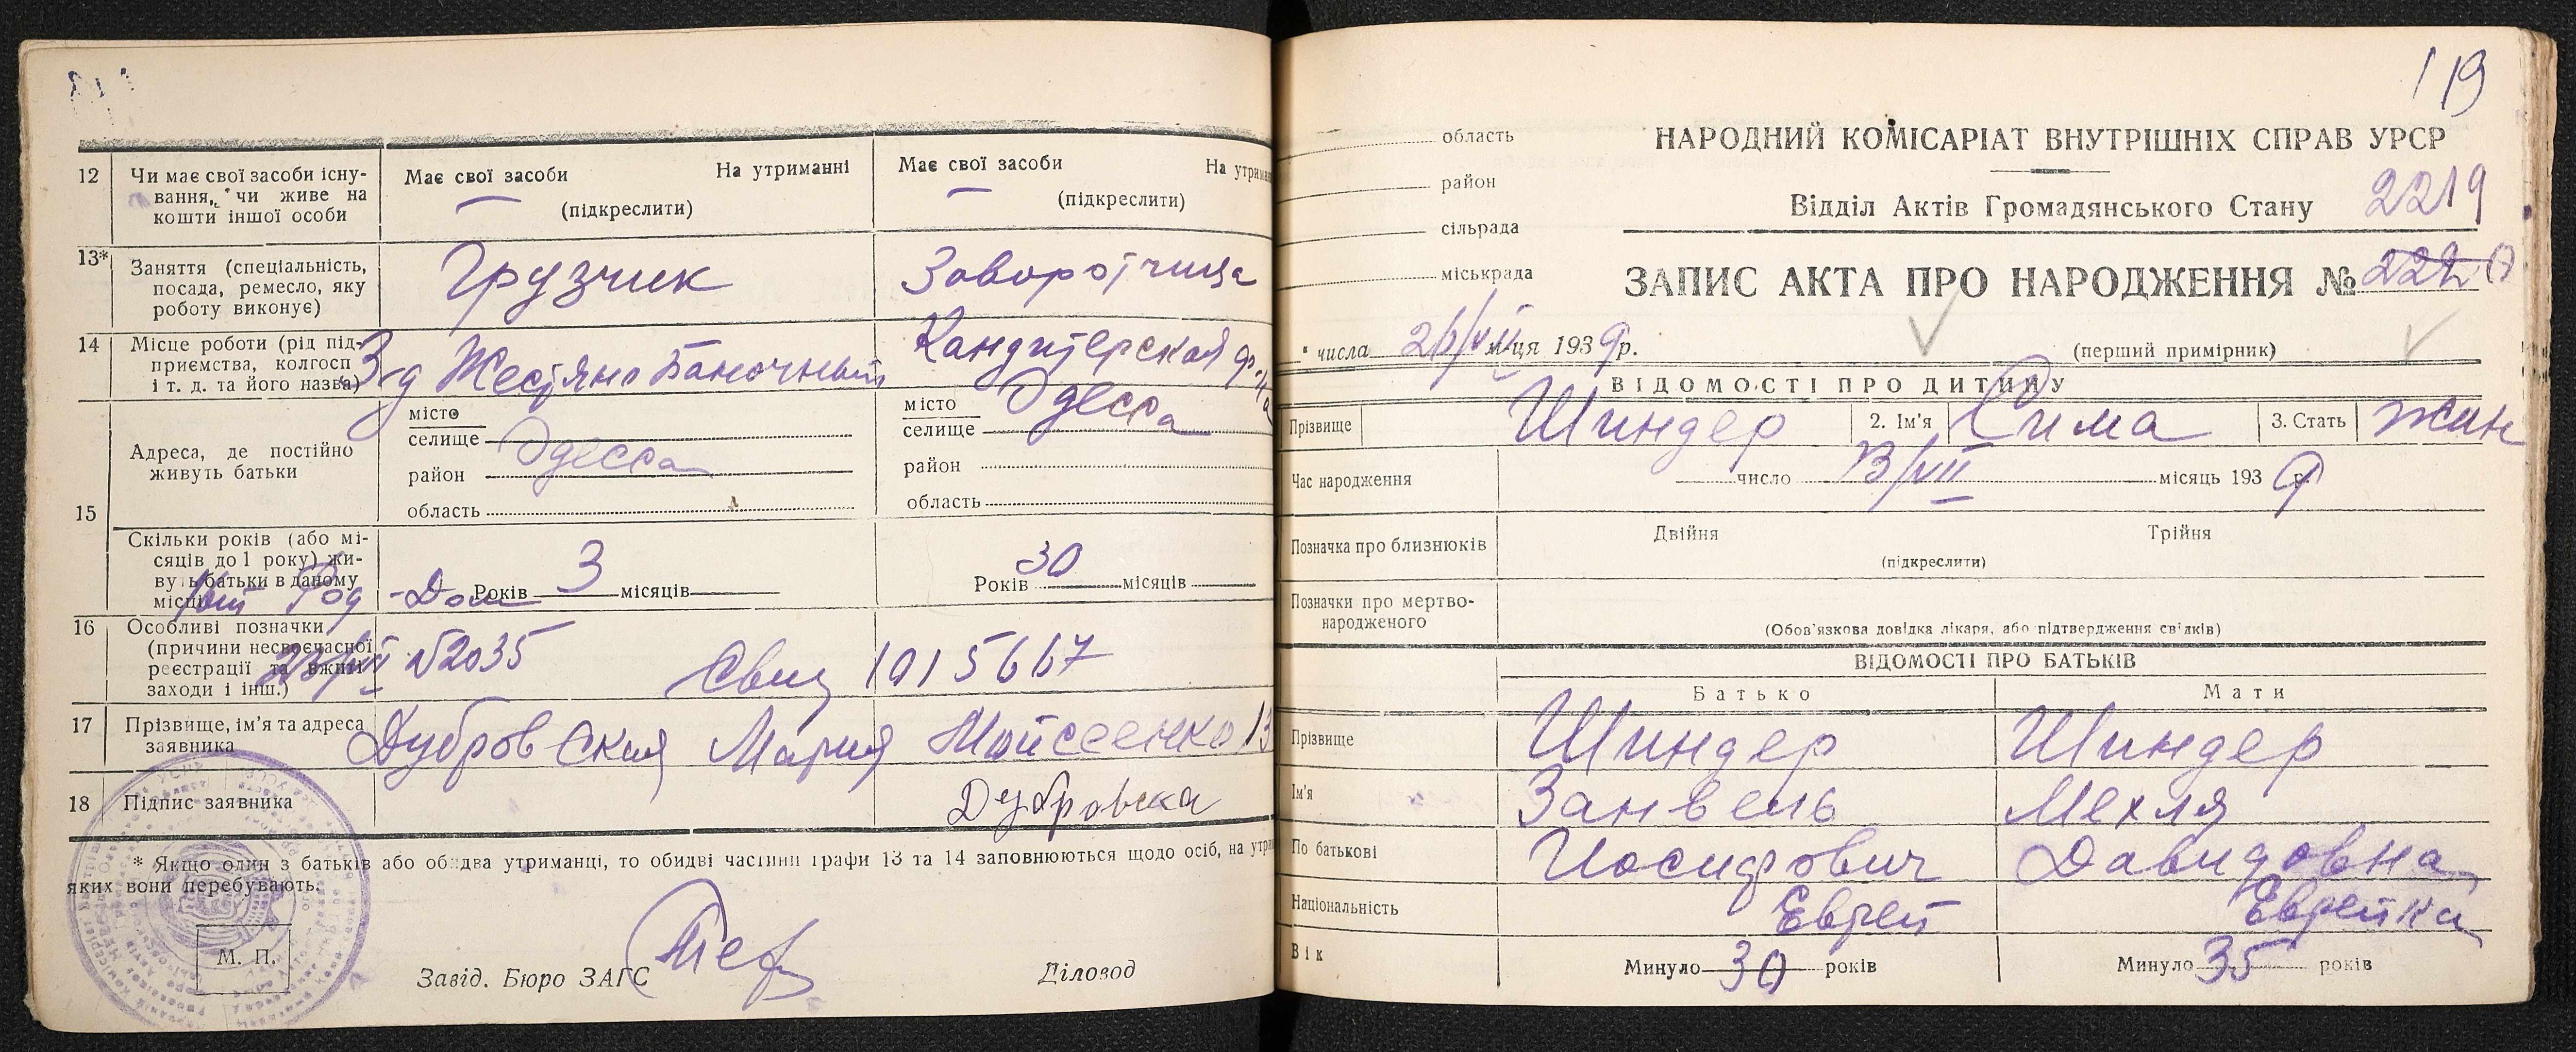 12 Чи має свої засоби існу-
вання, чи живе на
кошти іншої особи
Має свої засоби На утриманні
(підкреслити)
Має свої засоби На утрим
(підкреслити)
13* Заняття (спеціальність,
посада, ремесло, яку
роботу виконує)
Грузчик
Заворотчица
14 Місце роботи (рід під-
приємства, колгосп
і т. д. та його назва)
З-д Жестяно Баночный
Кандитерская ф-ка
15 Адреса, де постійно
живуть батьки
місто
селище
Одесса
район
область
місто
селище Одесса
район
область
Скільки років (або мі-
сяців до 1 року) жи-
вуть батьки в даному
місці
Років 3 місяців
Років 30 місяців
Род - Дом
16 Особливі позначки
(причини несвоєчасної
реєстрації та вжиті
заходи і інш.)
№2035 Свид 1015667
17 Прізвище, ім'я та адреса
заявника
Дубровская Мария Мойсеенко 13
18 Підпис заявника
Дубровска
* Якщо один з батьків або обидва утриманці, то обидві частини графи 13 та 14 заповнюються щодо осіб, на утри
яких вони перебувають.
М. П.
Завід. Бюро ЗАГС
Діловод
119
область
район
сільрада
міськрада
НАРОДНИЙ КОМІСАРІАТ ВНУТРІШНІХ СПРАВ УРСР
Відділ Актів Громадянського Стану 2219
ЗАПИС АКТА ПРО НАРОДЖЕННЯ № 2220
" числа 26/VII м-ця 1939 р.
(перший примірник)
ВІДОМОСТІ ПРО ДИТИНУ
Прізвище Шиндер 2. Ім'я Сима 3. Стать жин
Час народження число 13/VII місяць 1939 р.
Позначка про близнюків Двійня Трійня
(підкреслити)
Позначки про мертво-
народженого
(Обов'язкова довідка лікаря, або підтвердження свідків)
ВІДОМОСТІ ПРО БАТЬКІВ
Батько Мати
Прізвище Шиндер Шиндер
Ім'я Занвель Мехля
По батькові Иосифович Давидовна
Національність Еврей Еврейка
Вік Минуло 30 років Минуло 35 років